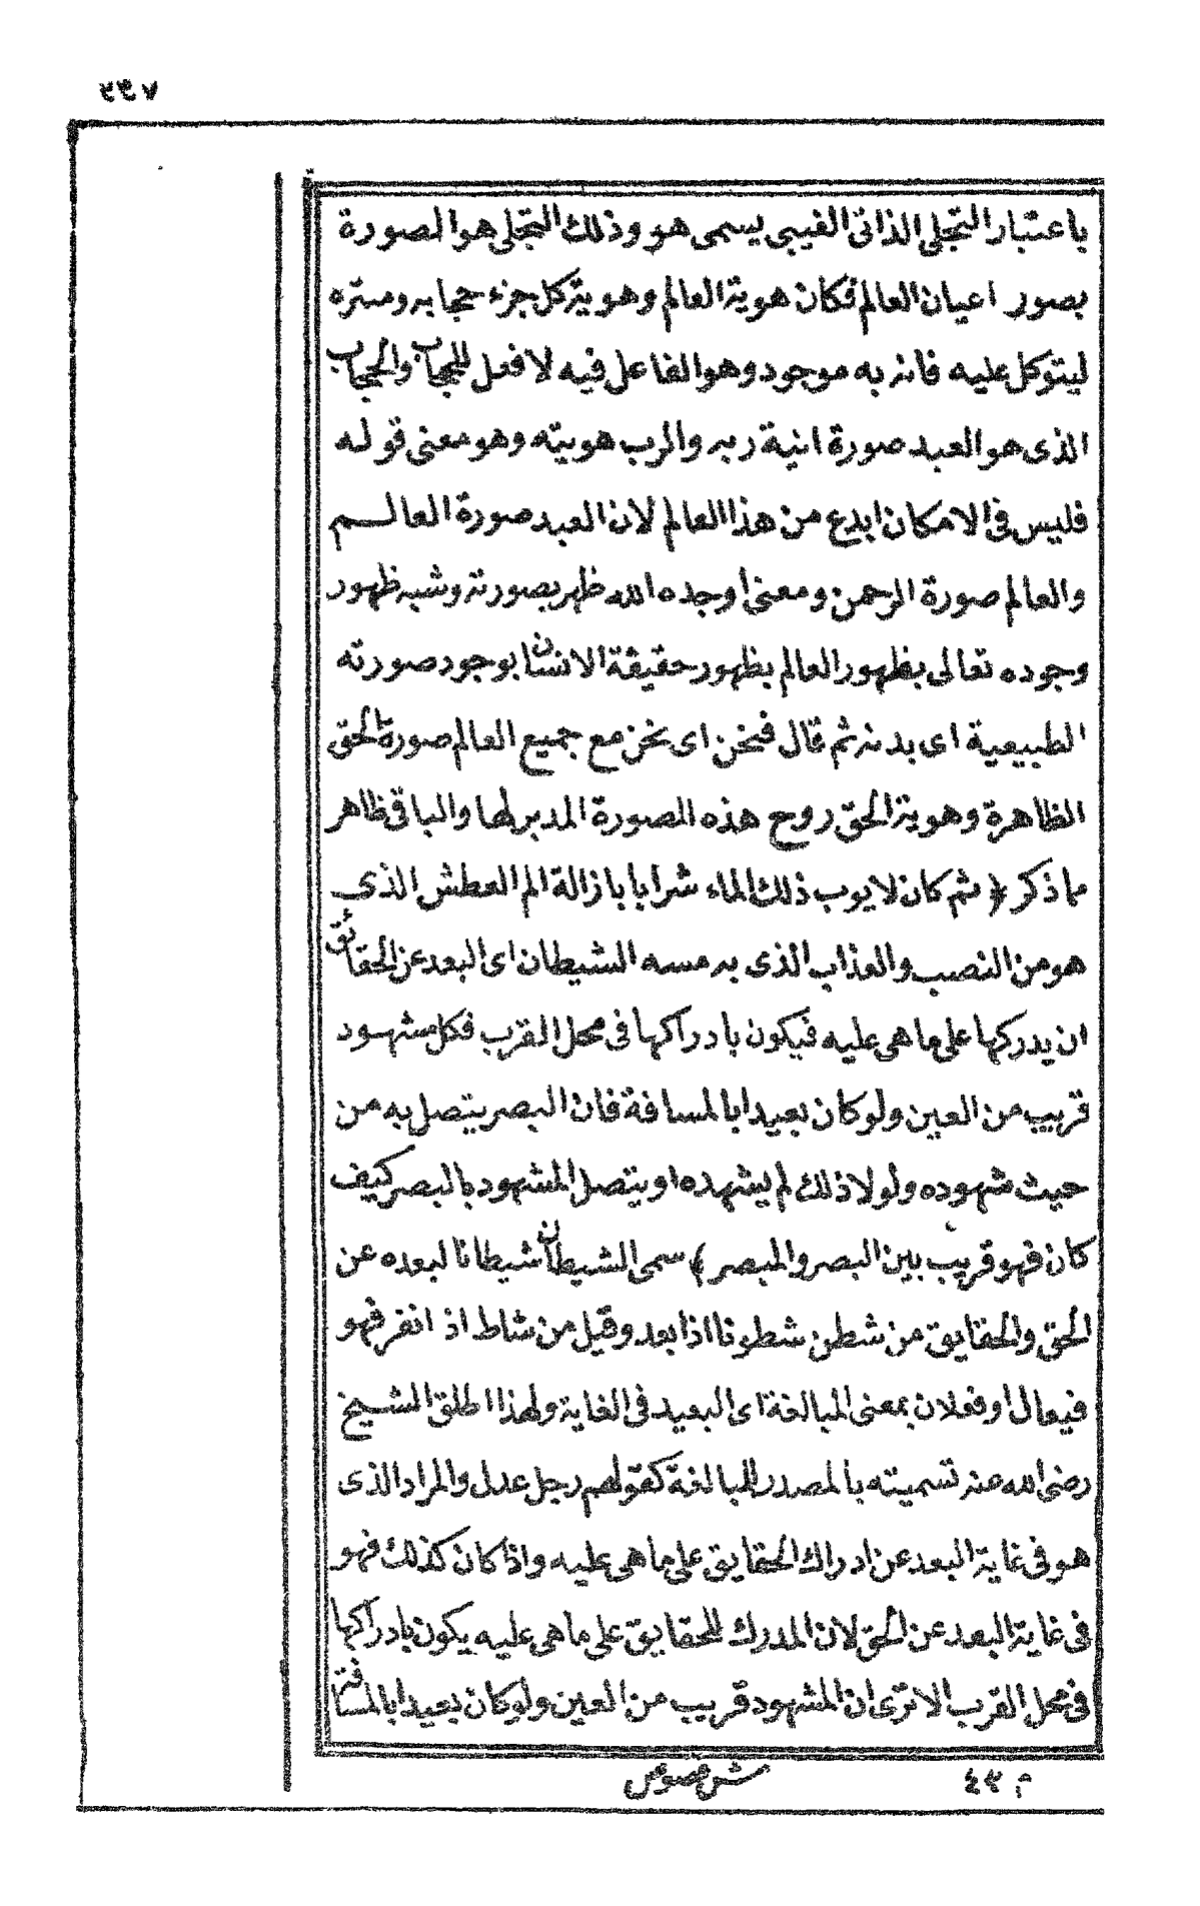 ٣٤٧
باعتبار التجلى الذاتى الغيبى يسمى هو وذلك التجلى هو الصورة
بصور اعيان العالم فكان هوية العالم وهوية كل جزء حجابه ومستره
ليتوكل عليه فانه به موجود وهو الفاعل فيه لا فعل للحجاب والحجاب
الذى هو العبد صورة انية ربه والرب هويته وهو معنى قوله
فليس فى الامكان ابدع من هذا العالم لان العبد صورة العالم
والعالم صورة الرحمن ومعنى اوجده الله ظهر بصورته وشبه ظهور
وجوده تعالى بظهور العالم بظهور حقيقة الانسان بوجود صورته
الطبيعية اى بدنه ثم قال فنحن اى نحن مع جميع العالم صورة الحق
الظاهرة وهوية الحق روح هذه الصورة المدبر لها والباقى ظاهر
مما ذكر ﴿ ثم كان لايوب ذلك الماء شرابا بازالة الم العطش الذى
هو من النصب والعذاب الذى به مسه الشيطان اى البعد عن الحقائق
ان يدركها على ماهى عليه فيكون بادراكها فى محل القرب فكل مشهود
قريب من العين ولو كان بعيدا بالمسافة فان البصر يتصل به من
حيث شهوده ولولا ذلك لم يشهده او يتصل المشهود بالبصر كيف
كان فهو قريب بين البصر والمبصر ﴾ سمى الشيطان شيطانا لبعده عن
الحق والحقايق من شطن شطونا اذا بعد وقيل من شاط اذ انفر فهو
فيعال او فعلان بمعنى المبالغة اى البعيد فى الغاية ولهذا اطلق الشيخ
رضى الله عنه تسميته بالمصدر للمبالغة كقولهم رجل عدل والمراد الذى
هو فى غاية البعد عن ادراك الحقايق على ماهى عليه واذا كان كذلك فهو
فى غاية البعد عن الحق لان المدرك للحقايق على ماهى عليه يكون بادراكها
فى محل القرب الا ترى ان المشهود قريب من العين ولو كان بعيدا بالمسافة
م ٤٣
ش فصوص